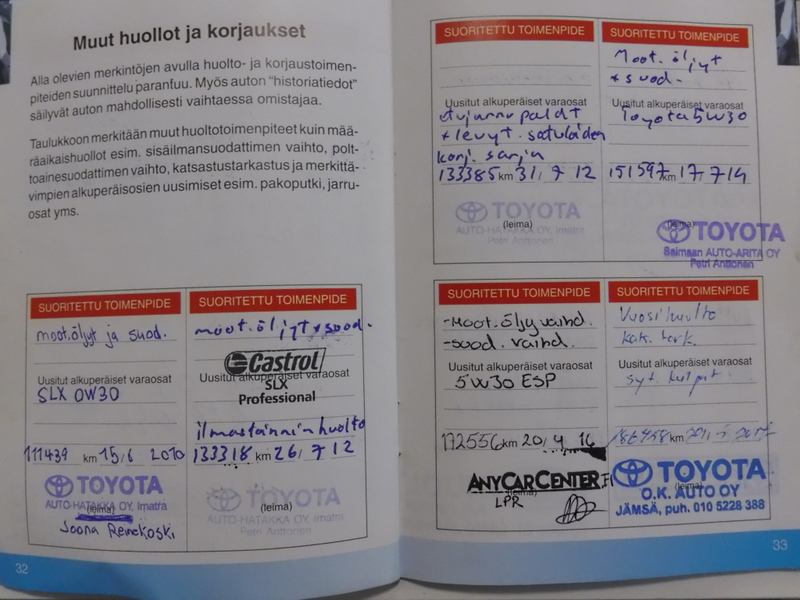 Muut huollot ja korjaukset
Alla olevien merkintöjen avulla huolto- ja korjaustoimen-
piteiden suunnittelu parantuu. Myös auton "historiatiedot"
säilyvät auton mahdollisesti vaihtaessa omistajaa.
Taulukkoon merkitään muut huoltotoimenpiteet kuin mää-
räaikaishuollot esim. sisäilmansuodattimen vaihto, polt-
toainesuodattimen vaihto, katsastustarkastus ja merkittä-
vimpien alkuperäisosien uusimiset esim. pakoputki, jarru-
osat yms.
SUORITETTU TOIMENPIDE
moot.öljyt ja suod.
Uusitut alkuperäiset varaosat
SLX 0W30
111439 km 15/6 2010
TOYOTA
AUTO-HATAKKA OY, Imatra
(leima)
Joona Reinekoski
SUORITETTU TOIMENPIDE
moot.öljyt + suod.
Castrol
Uusitut alkuperäiset varaosat
SLX
Professional
ilmastoinnin huolto
133318 km 26/ 7 12
TOYOTA
(leima)
AUTO-HATAKKA OY, Imatra
Petri Anttonen
32
SUORITETTU TOIMENPIDE
Uusitut alkuperäiset varaosat
etujarrupalat
+ levyt. satuloiden
korj. sarja
133385 km 31/ 7 12
TOYOTA
(leima)
AUTO-HATAKKA OY, Imatra
Petri Anttonen
SUORITETTU TOIMENPIDE
Moot. öljyt
+ suod.
Uusitut alkuperäiset varaosat
Toyota 5W30
151597 km 17/ 7 14
(leima)
TOYOTA
Saimaan AUTO-ARITA OY
Petri Anttonen
SUORITETTU TOIMENPIDE
-Moot.öljy vaihd.
-suod. vaihd.
Uusitut alkuperäiset varaosat
5W30 ESP
172556 km 20/ 4 16
ANYCARCENTER.FI
(leima)
LPR
SUORITETTU TOIMENPIDE
Vuosihuolto
kats. tark.
Uusitut alkuperäiset varaosat
syt. tulpat
km
TOYOTA
(leima)
O.K. AUTO OY
JÄMSÄ, puh. 010 5228 388
33